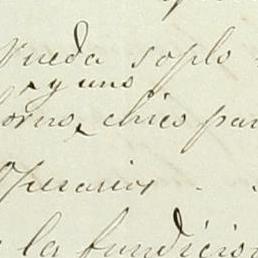 rueda soplo
y uno
horno, chico par
Operarios
la fundicion